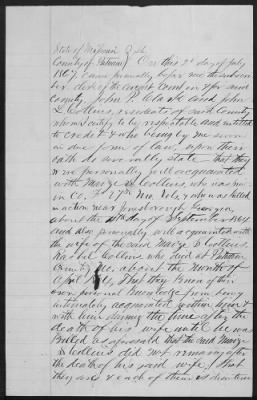 State of Missouri } S.S.
County of Putnam } On this 2d day of July
1867 came personally before me the subscri
ber clerk of the County Court in & for said
County John P. Clark and John
L. Collins, residents of said county
who I certify to be respectable and entitled
to credit & who being by me sworn
in due form of law, upon their
oath do severally state that they
were personally well acquainted
with Collins who was in
in Co. F Mo Vols & who was killed
in action near
about the day of September 1864
and also personally well acquainted with
the wife of the said Collins
Collins who died at
County Mo, about the month of
April That they know of their
own personal knowledge from being
intimately acquainted with her &
with him during the time after the
death of his wife until he was
killed as aforesaid that the said
Collins did not remarry after
the death of his said wife, that
they are & each of them is disinteres